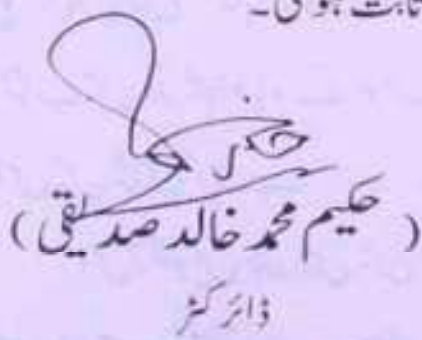 ثابت ہوگی۔
(حکیم محمد خالد صدیقی)
ڈائرکٹر